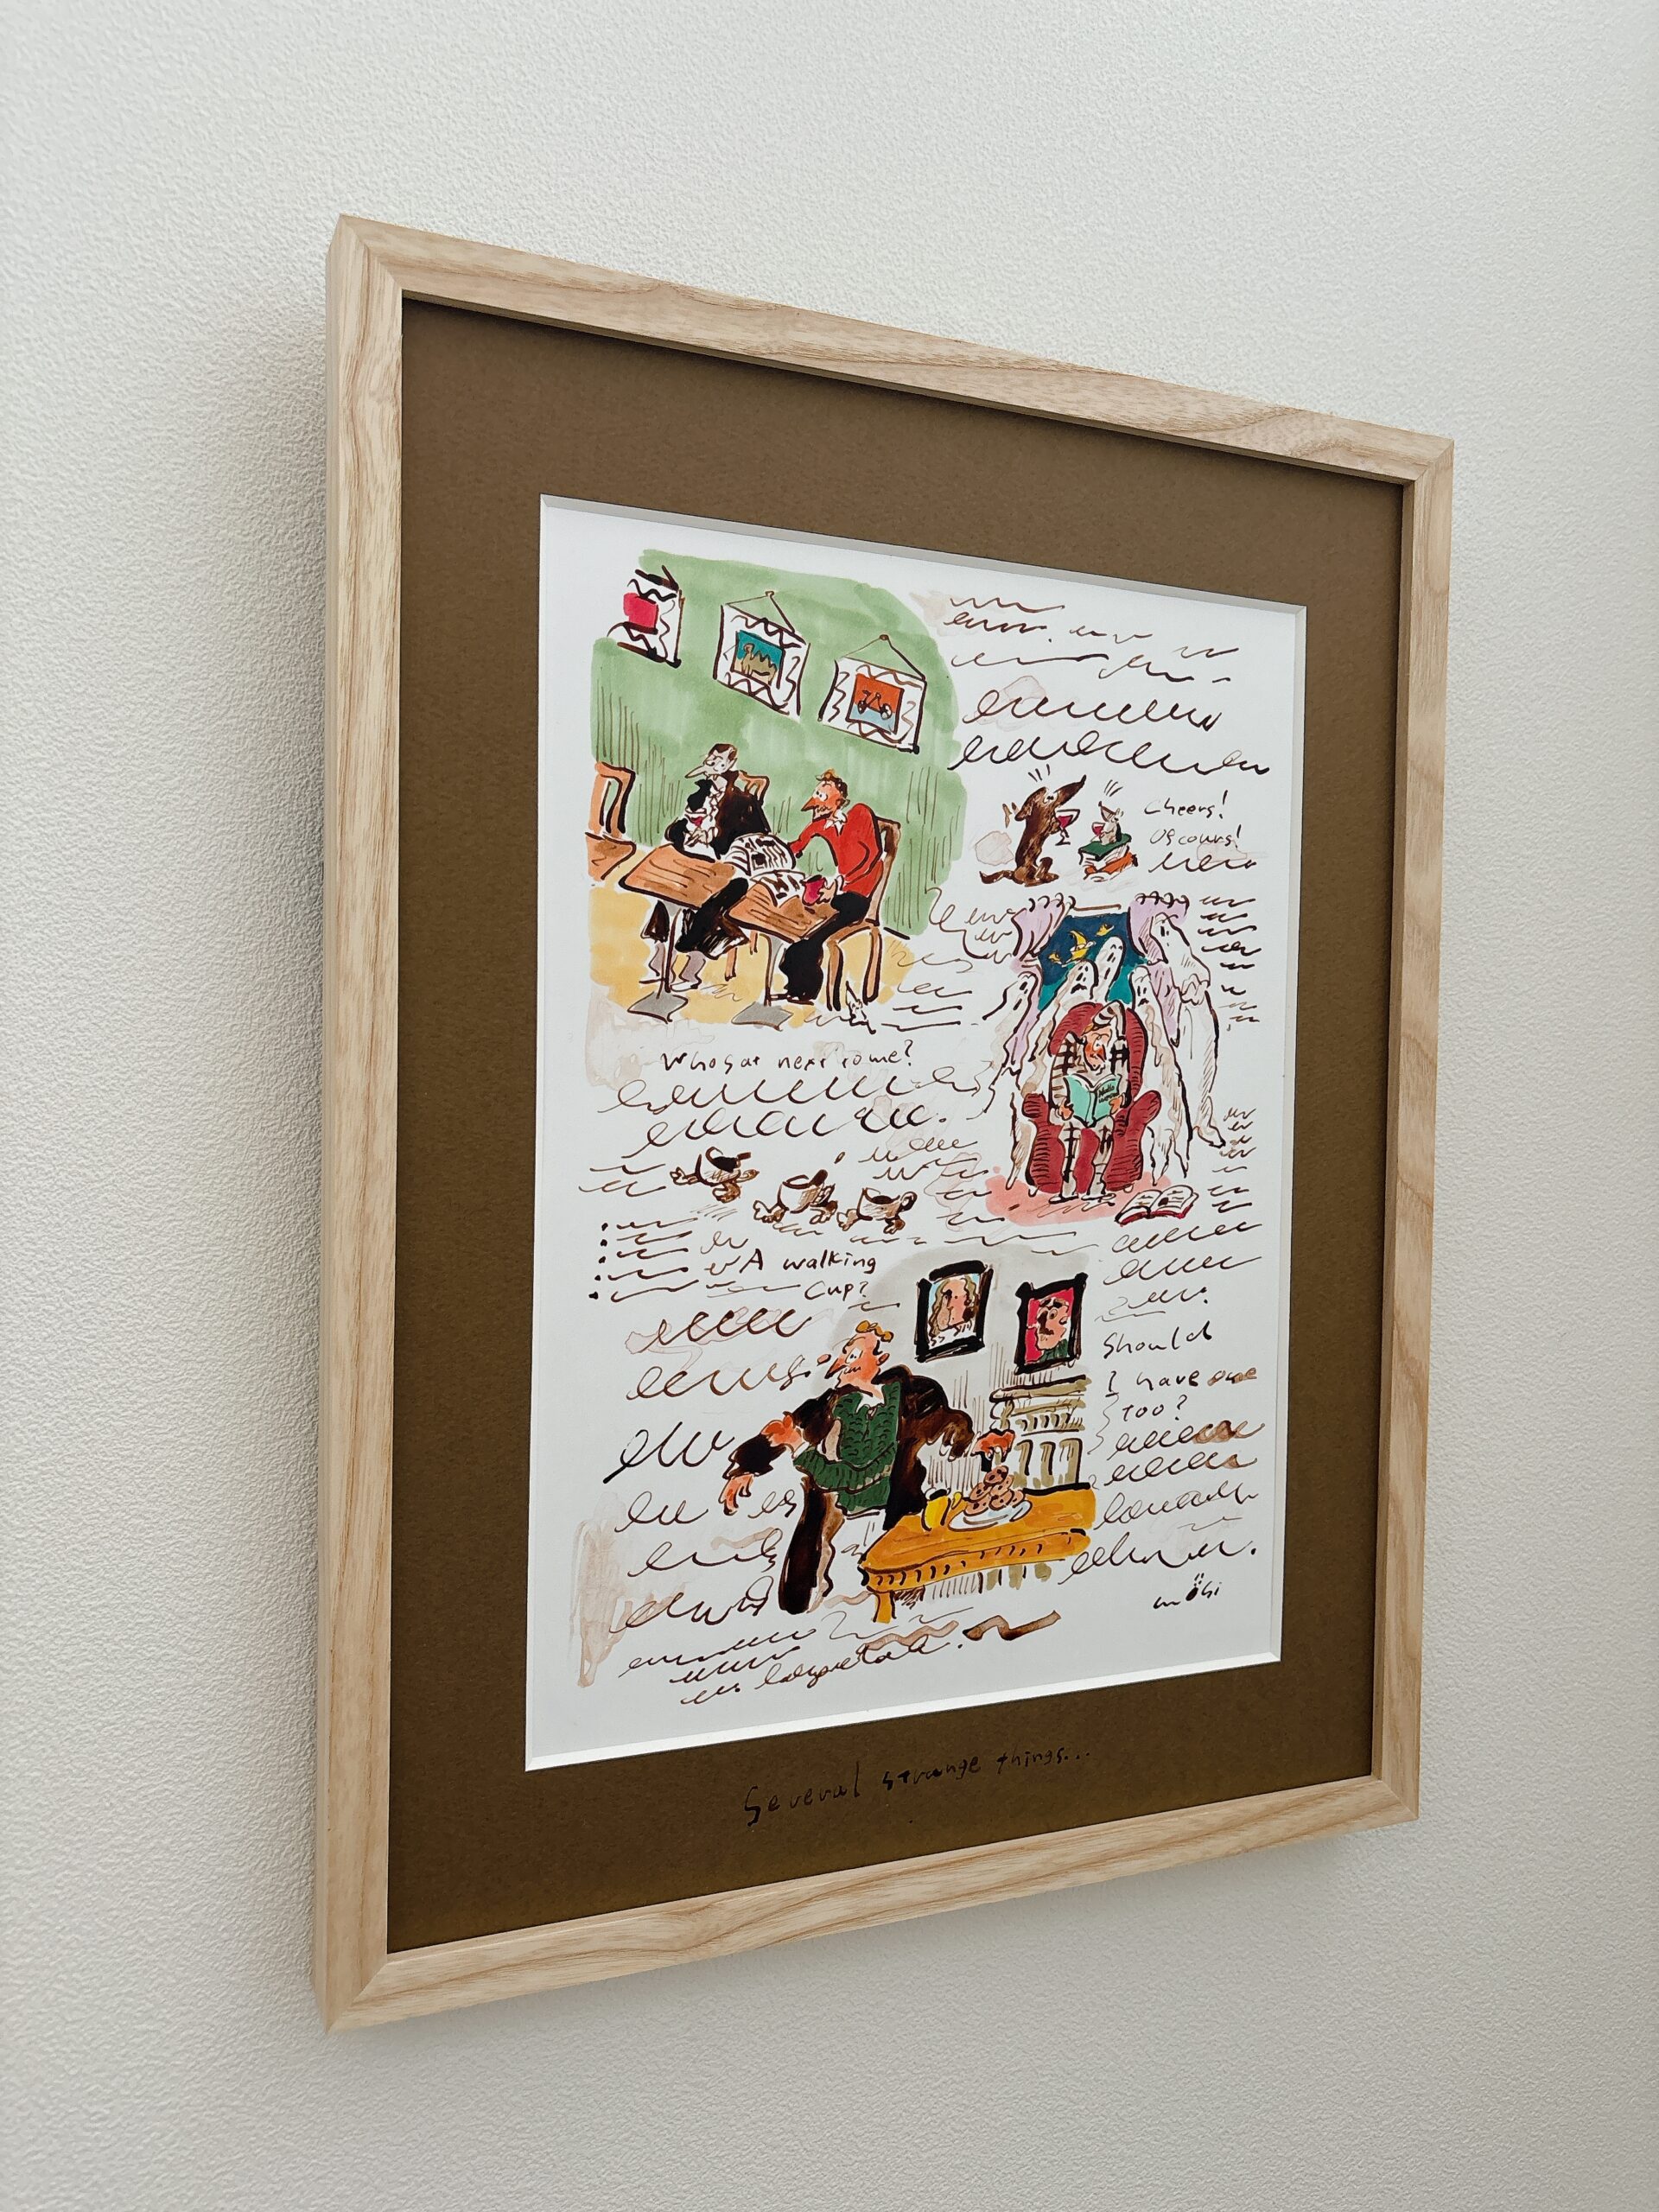 Cheers!
Of cours!
Who sat next to me?
A walking
Cup?
Should
I have one
too?
mösi
Several strange things...